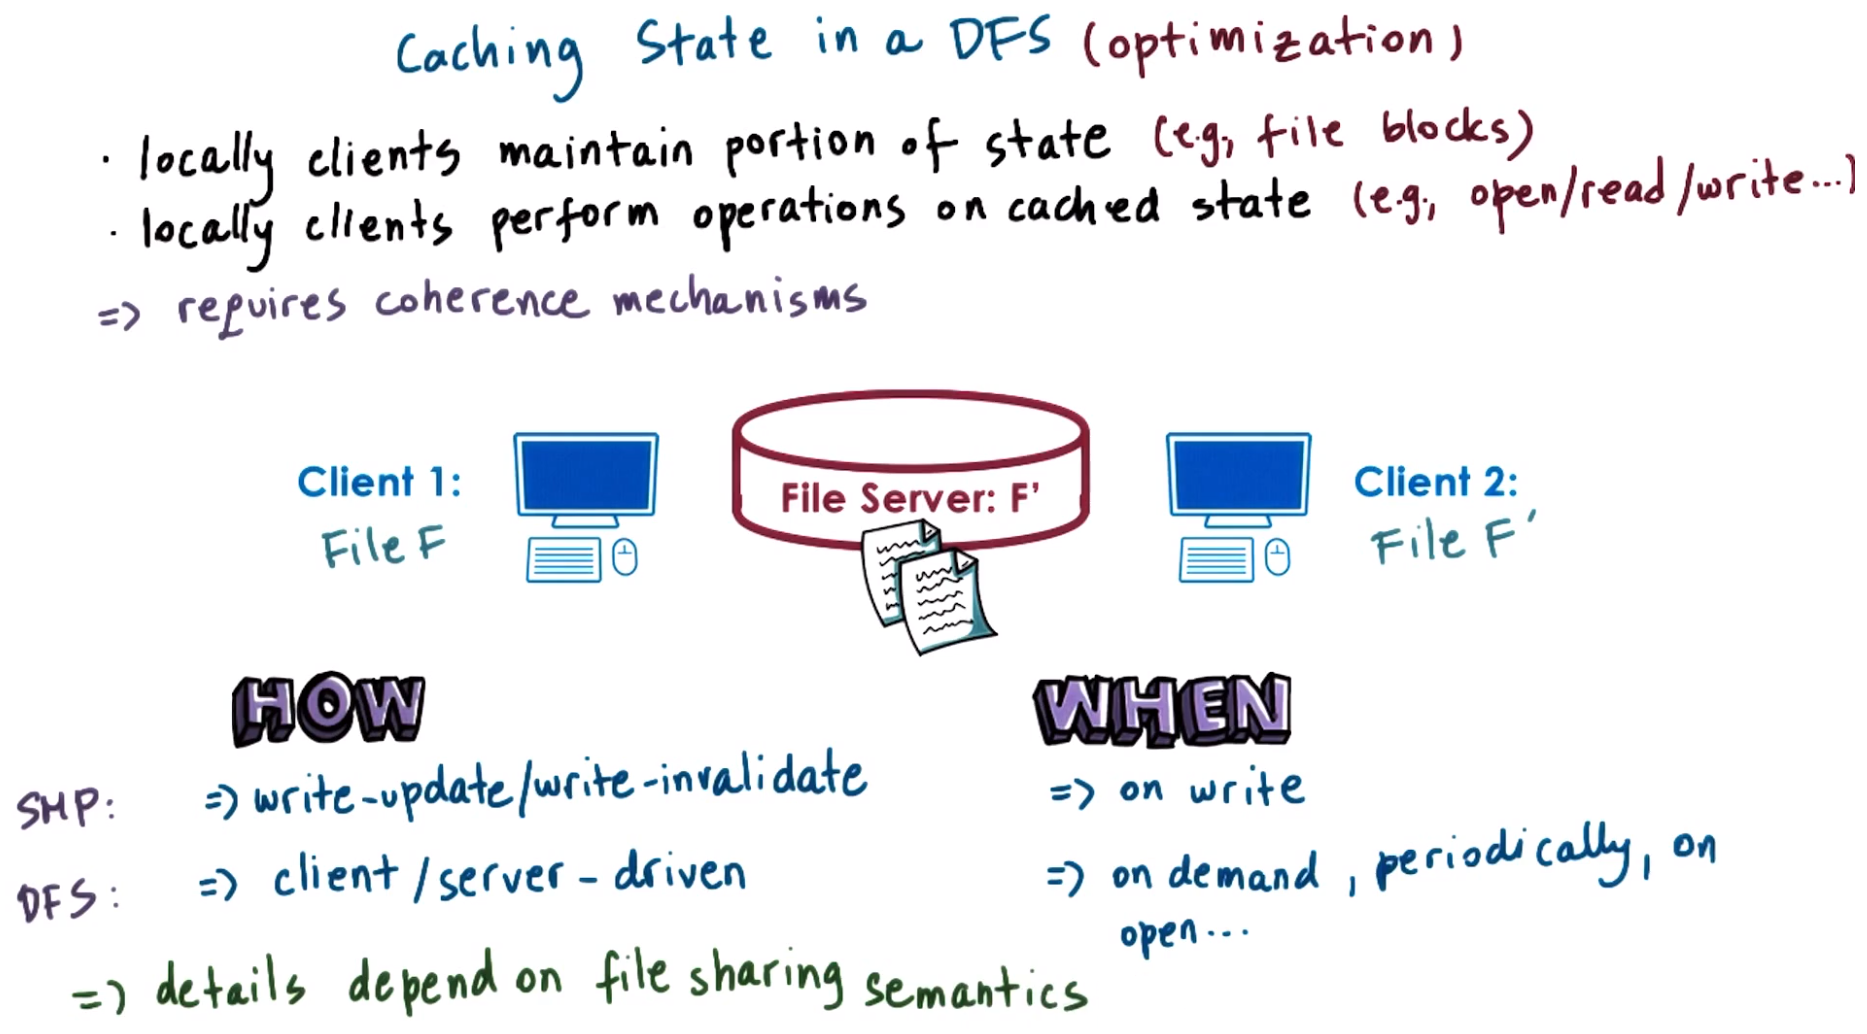 Caching State in a DFS (optimization)
· locally clients maintain portion of state (e.g., file blocks)
· locally clients perform operations on cached state (e.g., open/read/write...)
=> requires coherence mechanisms
Client 1:
File F
File Server: F'
Client 2:
File F'
HOW
WHEN
SMP: => write-update/write-invalidate => on write
DFS: => client/server-driven => on demand, periodically, on
open...
=> details depend on file sharing semantics